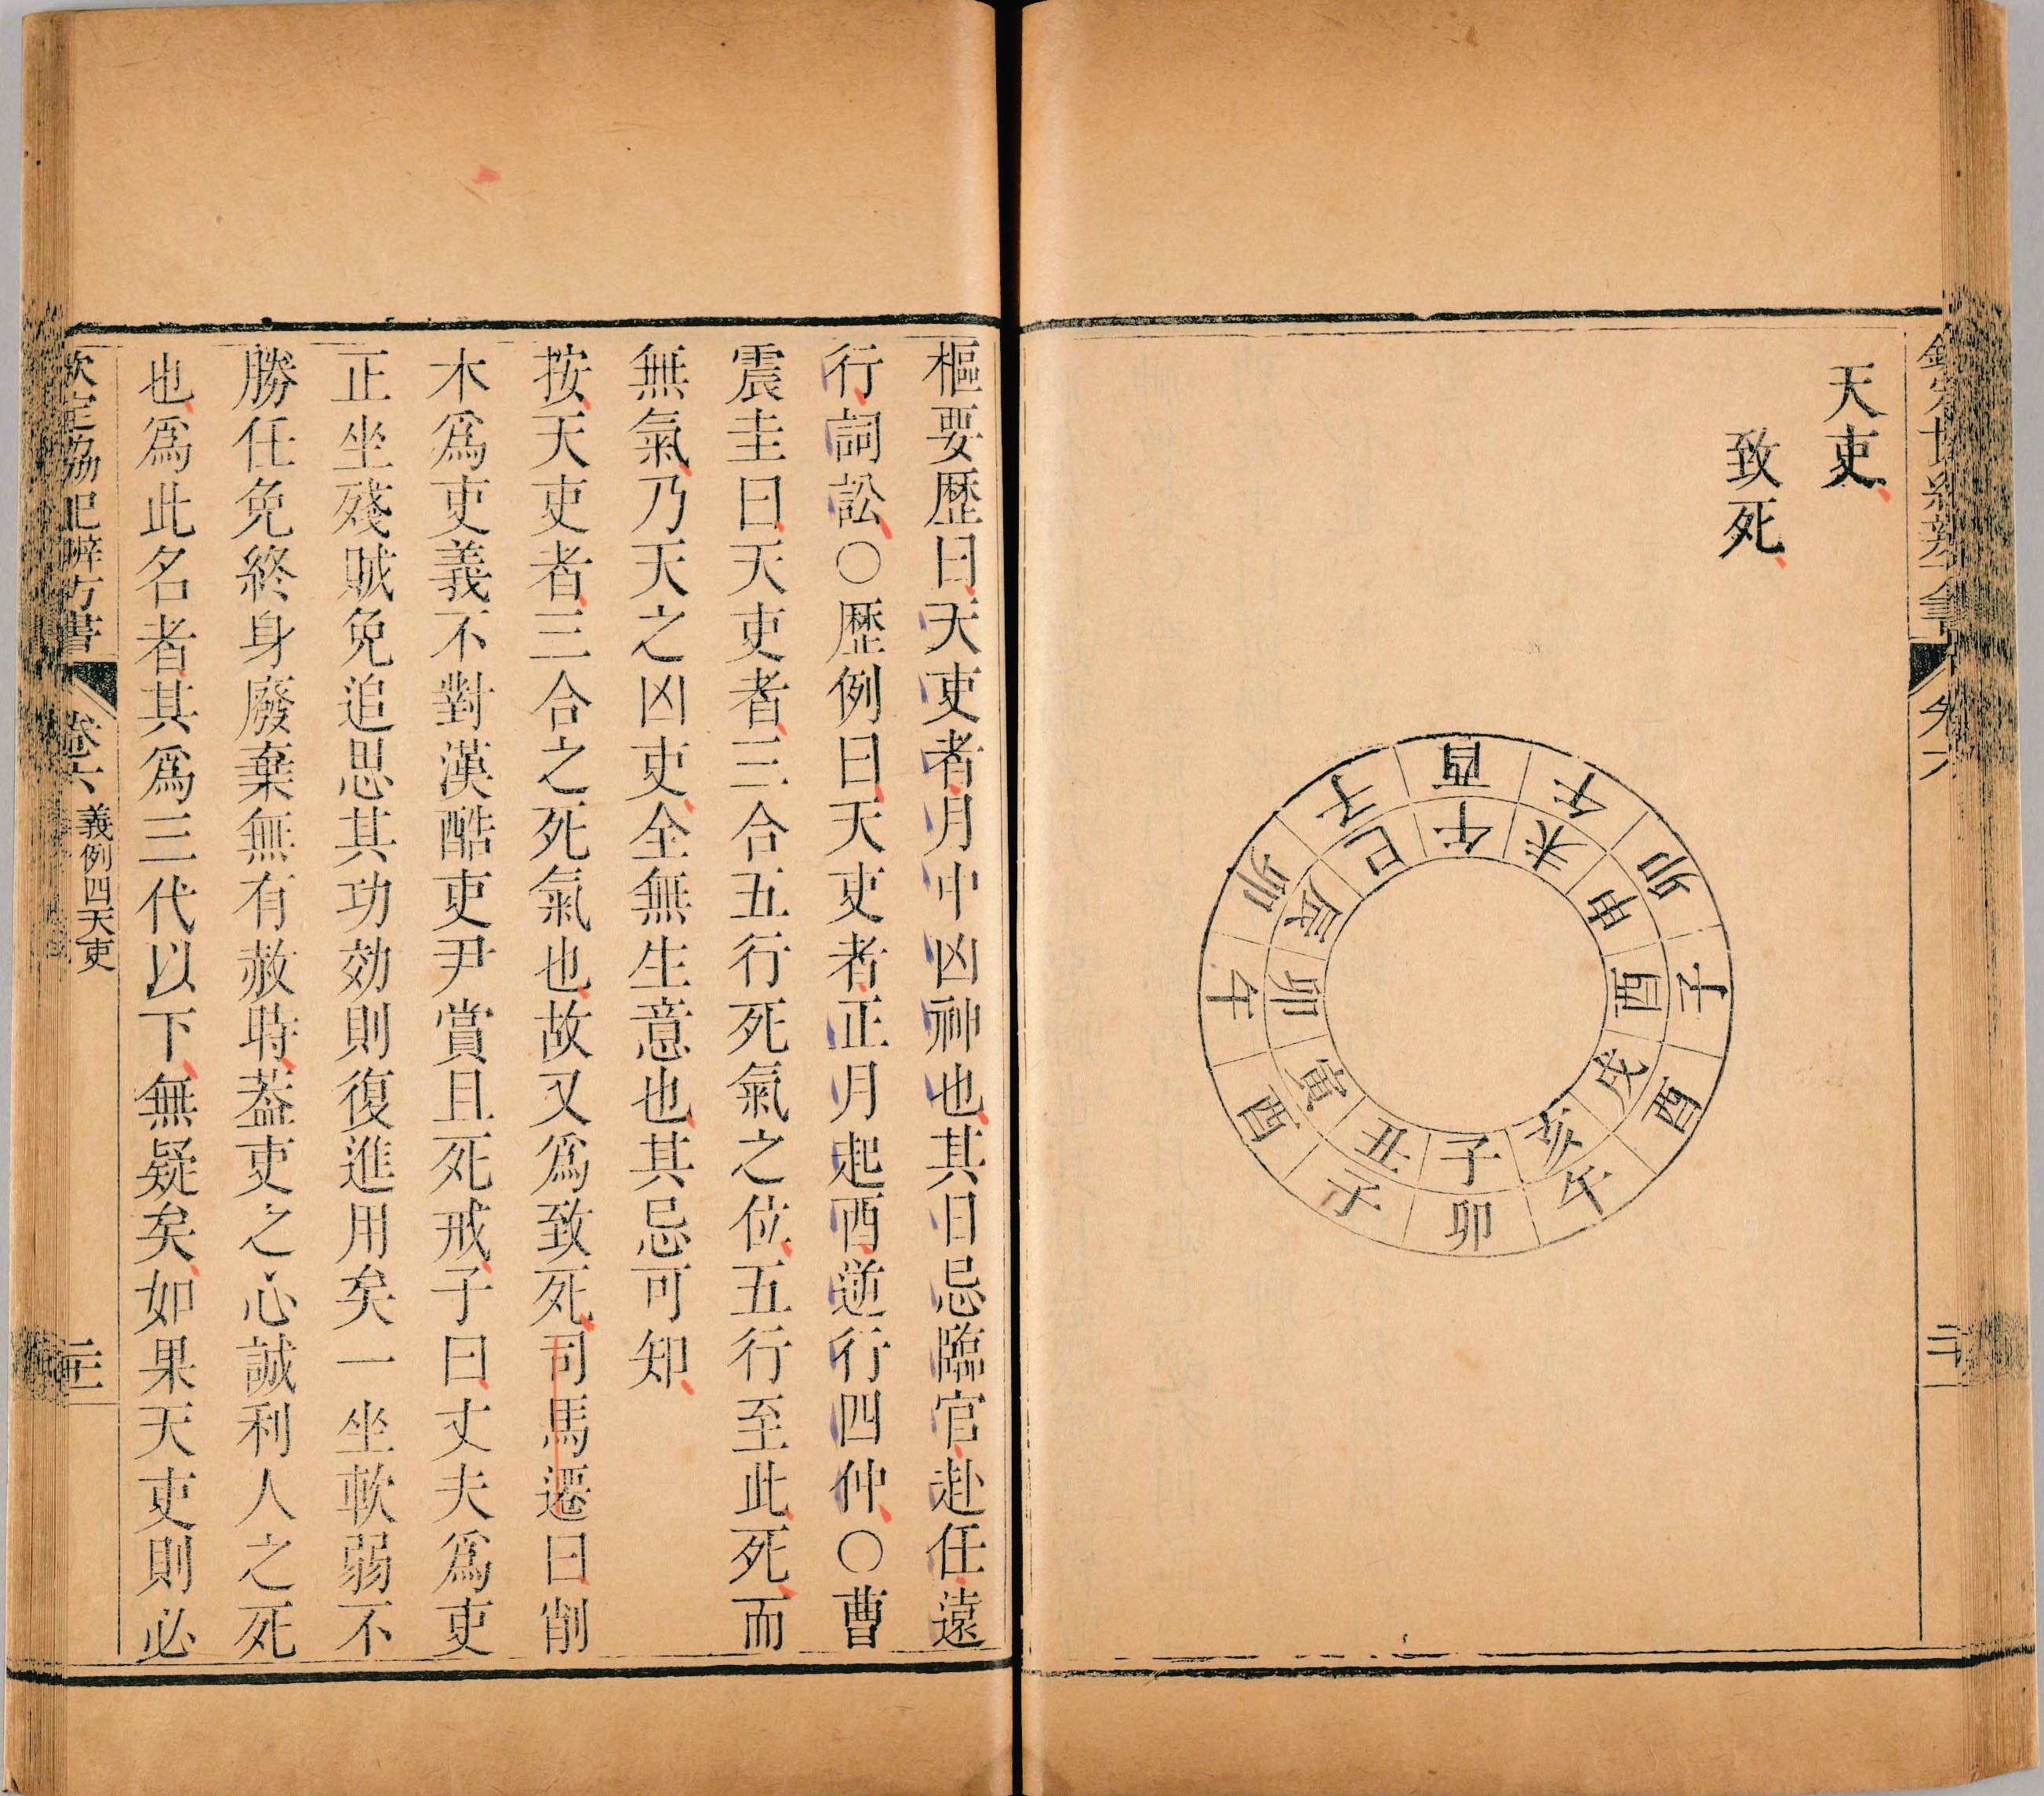 天吏
致死
酉午卯子酉午卯子酉午卯子
午未申酉戌亥子丑寅卯辰巳
樞要歷曰天吏者月中凶神也其日忌臨官赴任遠
行詞訟○歷例曰天吏者正月起酉逆行四仲○曹
震圭曰天吏者三合五行死氣之位五行至此死而
無氣乃天之凶吏全無生意也其忌可知
按天吏者三合之死氣也故又爲致死司馬遷曰削
木爲吏義不對漢酷吏尹賞且死戒子曰丈夫爲吏
正坐殘賊免追思其功効則復進用矣一坐軟弱不
勝任免終身廢棄無有赦時葢吏之心誠利人之死
也爲此名者其爲三代以下無疑矣如果天吏則必
欽定協紀辨方書
卷六
義例四天吏